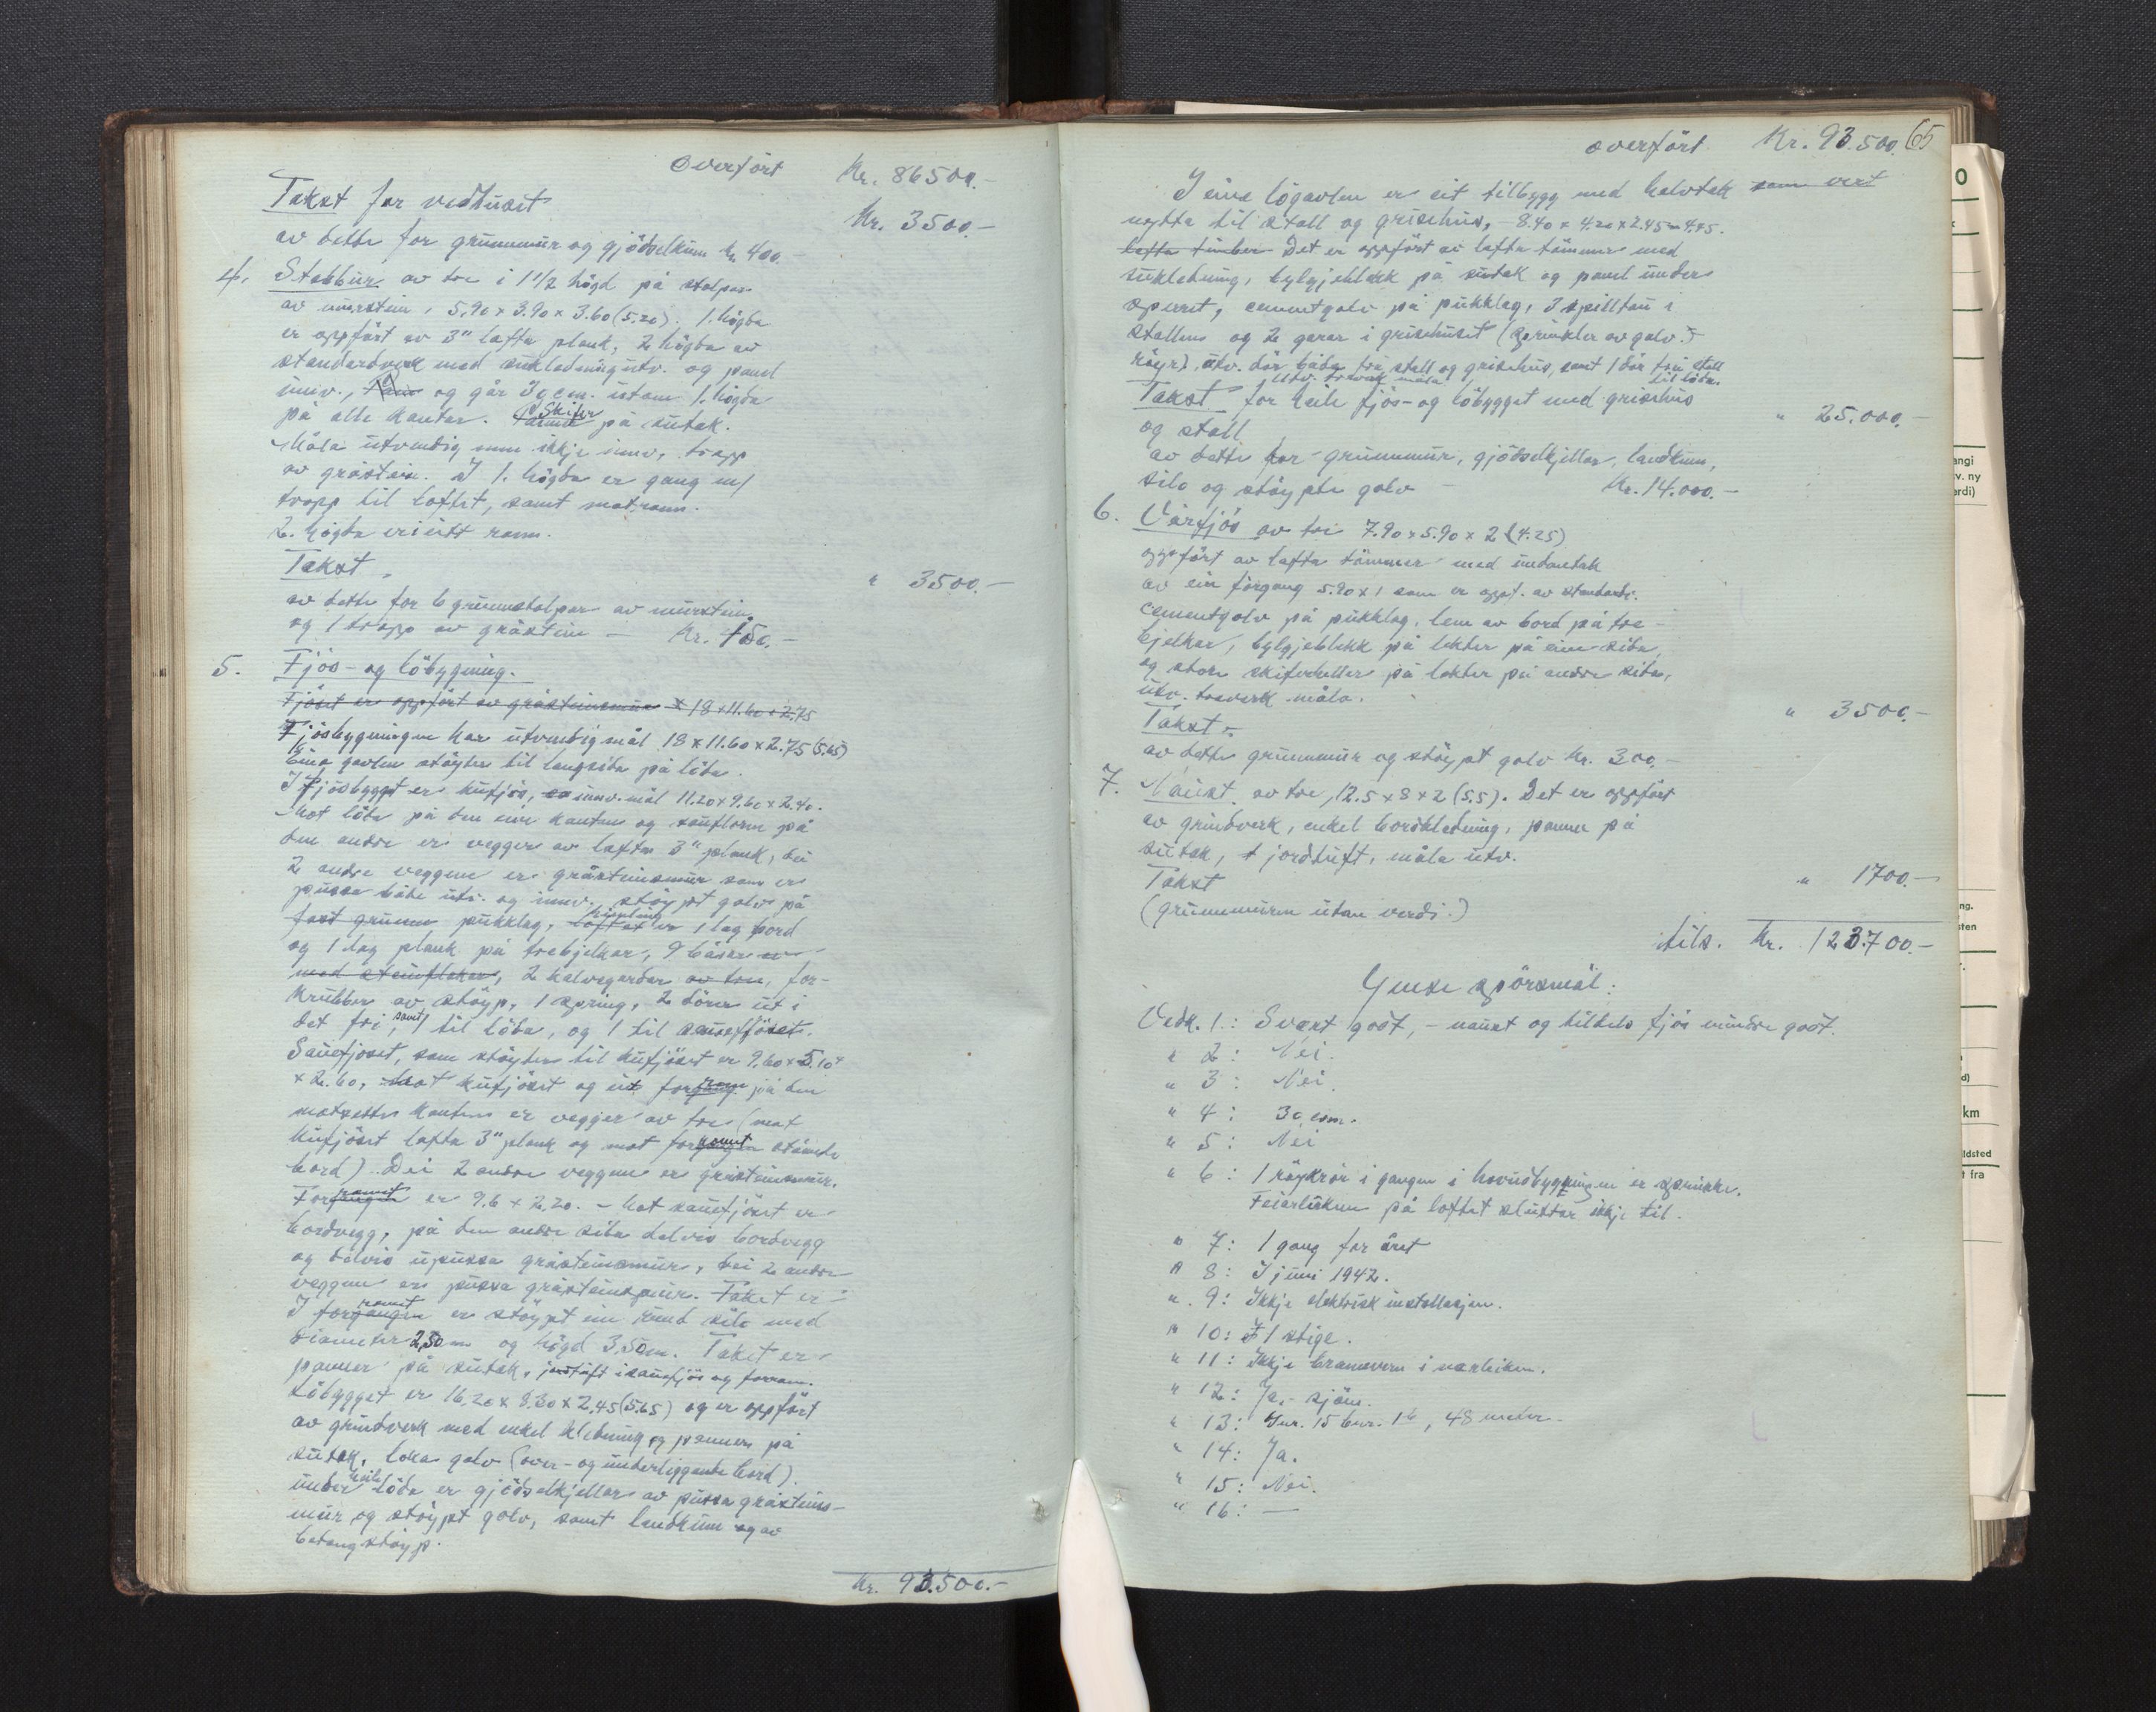 Overført Kr. 86500.-
Takst for vedhuset Kr. 3500.-
av dette for grunnmur og gjödselkum kr. 400.-
4. Stabbur av tre i 1 1/2 högd på stolpar
av murstein, 5.90 x 3.90 x 3.60 (5.20). 1. högda
er oppfört av 3" lafta plank, 2 högda av
standardverk med sukledning utv. og panel
innv., og går 35 cm. utom 1. högda
på alle kantar. Skifer på sutak.
Måla utvendig men ikkje innv. trapp
av gråstein. I 1. högda er gang m/
trapp til loftet, samt matrom.
2. högda er i eitt rom.
Takst " 3500.-
av dette for 6 grunnstolpar av murstein
og 1 trapp av gråstein - Kr. 150.-
5. Fjös- og löbygning.
Fjöset er oppfört av gråsteinsmur x 18 x 11.60 x 2.75
Fjösbygningen har utvendig mål 18 x 11.60 x 2.75 (5.65)
Eine gavlen stöyter til langsida på löda.
I fjösbygget er kufjös, innv. mål 11.20 x 9.60 x 2.40.
Mot löda på den eine kanten og sauefloren på
den andre er vegger av lafta 3" plank, dei
2 andre veggene er gråsteinsmur som er
pussa både utv. og innv. stöypt golv på
fast grunn pukklag, himling er 1 lag bord
og 1 lag plank på trebjelkar, 9 båsar av
med steinflokar, 2 kalvegardar av tre, for-
krubber av stöyp, 1 spring, 2 dörer ut i
det fri, samt 1 til löda, og 1 til sauefjöset.
Sauefjöset, som stöyter til kufjöset er 9.60 x 5.10 x
x 2.60, Mot kufjöset og ut forgang rom på den
motsette kanten er vegger av tre (mot
kufjöset lafta 3" plank og mot forrommet ståande
bord). Dei 2 andre veggene er gråsteinsmur.
Forrommet er 9.6 x 2.20. - Mot sauefjöset er
bordvegg, på den andre sida delvis bordvegg
og delvis upussa gråsteinsmur, dei 2 andre
veggene er pussa gråsteinsmur. Taket er:
I forrommet er stöypt ein rund silo med
diameter 2,50 m og högd 3,50 m. Taket er
panner på sutak, jordtuft i sauefjös og forrom.
Löbygget er 16.20 x 8.30 x 2.45 (5.65) og er oppfört
av grindverk med enkel kledning og panner på
sutak, löda golv (over- og underliggande bord).
under heile löda er gjödselkjellar av pussa gråsteins-
mur og stöypt golv, samt landkum og av
betong stöyp.
Kr. 93.500.-
overfört Kr. 93.500. 65
I eine lögavlen er eit tilbygg med halvtak som vert
nytta til stall og grisehus, - 8.40 x 4.20 x 2.45 - 4.45.
lafta timber Det er oppfört av lafta tömmer med
sukledning, bylgjeblekk på sutak og panel under
sperret, cementgolv på pukklag, 3 spilltau i
stallen og 2 garar i grisehuset (sprinkler av galv.
röyr), utv. dör både frå stall og grisehus, samt 1 dör frå stall
til löda.
utv. treverk måla
Takst for heile fjös- og löbygget med grisehus
og stall " 25.000.-
av dette for grunnmur, gjödselkjellar, landkum,
silo og stöypte golv - Kr. 14.000.-
6. Vårfjös av tre 7.90 x 5.90 x 2 (4.25)
oppfört av lafta tömmer med undantak
av ein forgang 5.90 x 1 som er oppf. av standardv.
Cementgolv på pukklag, lem av bord på tre-
bjelkar, bylgjeblekk på lekter på eine sida,
og store skiferheller på lekter på andre sida,
utv. treverk måla.
Takst " 3500.-
av dette grunnmur og stöypt golv kr. 300.-
7. Naust av tre, 12.5 x 8 x 2 (5.5). Det er oppfört
av grindverk, enkel bordkledning, panner på
sutak, jordtuft, måla utv.
Takst " 1700.-
(grunnmuren utan verdi.)
tils. Kr. 123.700.-
Ymse spörsmål:
Vedk. 1: Svært godt, - naust og tildels fjös mindre godt.
" 2: Nei.
" 3: Nei.
" 4: 30 cm.
" 5: Nei
" 6: 1 röykrör i gangen i hovudbygningen er sprukke.
Feierluken på loftet sluttar ikkje til.
" 7: 1 gang for året
" 8: I juni 1942.
" 9: Ikkje elektrisk installasjon.
" 10: 1 stige.
" 11: Ikkje brannvern i nærleiken.
" 12: Ja, - sjöen.
" 13: Gnr. 15 bnr. 16, 48 meter.
" 14: Ja.
" 15: Nei.
" 16: -